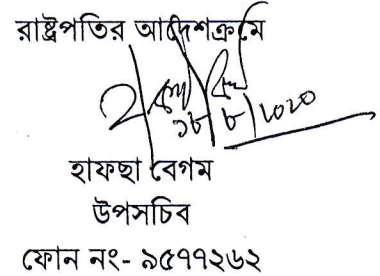 রাষ্ট্রপতির আদেশক্রমে
১৮/৮/২০২০
হাফছা বেগম
উপসচিব
ফোন নং- ৯৫৭৭২৬২